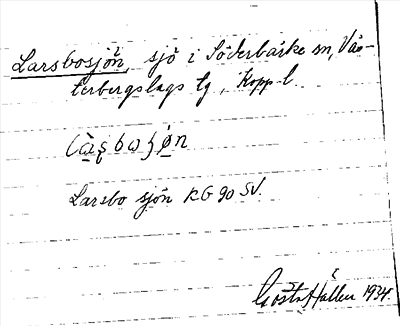 Larsbosjön, sjö i Söderbärke sn, Väs-
terbergslags tg, Kopp. l.
Larsbo sjön RG 90 SV.
Gösta Hallen 1934.